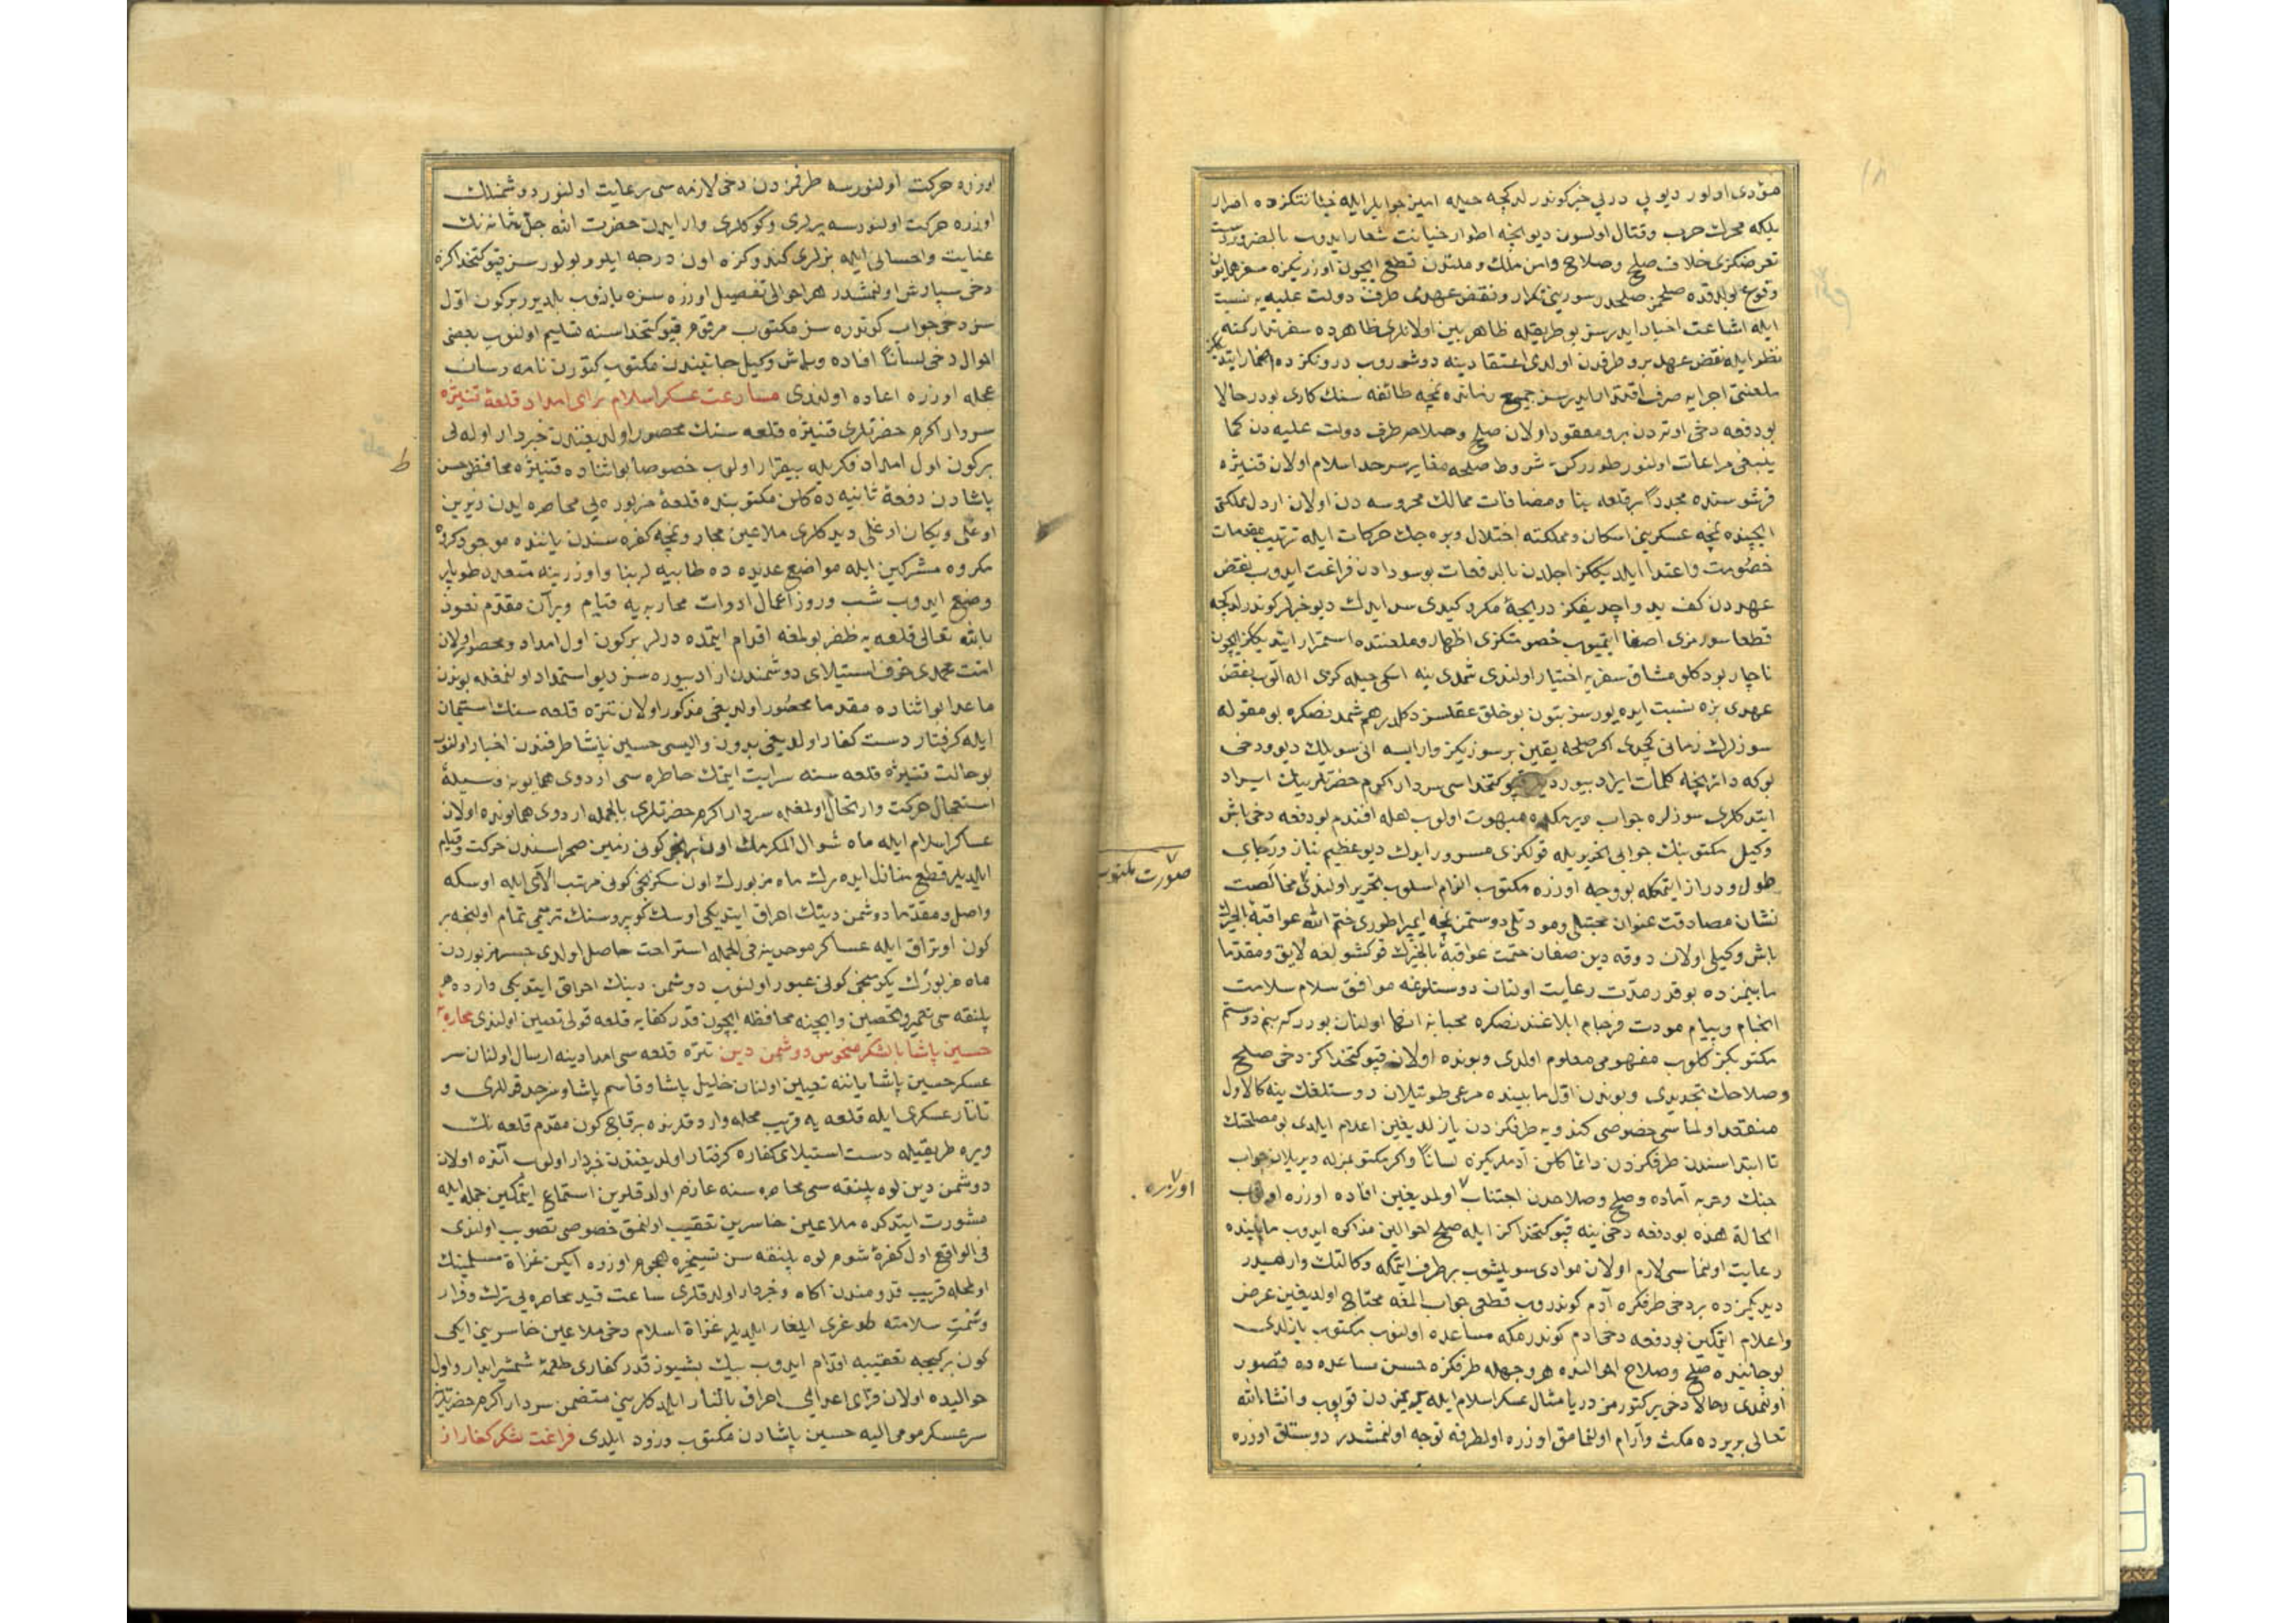 مؤدی اولور دیو پی در پی خبر کوندرلدکچه حیله آمیز جوابلر ایله خیانتکزده اصرار
بلکه محرك حرب وقتال اولسون دیو نیچه اطوار خیانت شعار ایدوب بالضروره
تعرضکزی خلاف صلح وصلاح وامن ملك وملتدن قطع ایچون اوزریکزه سفر همایون
وقوع بولدقده صلحمز صلحدر سوزینی تکرار ونقض عهدی طرف دولت علیه یه نسبت
ایله اشاعت اخبار ایدرسز بو طریقله ظاهر بین اولانلری ظاهرده سفر تدارکنه
نظر ایله نقض عهد برو طرفدن اولدی اعتقادینه دوشوروب درونکزده اضمار ایتدیککز
ملعنتی اجرایه صرف اقتدار ایدرسز جمیع زمانده نمچه طائفه سنك کاری بودر حالا
بو دفعه دخی اوته دن برو معقود اولان صلح وصلاحه طرف دولت علیه دن کما
ینبغی مراعات اولنور طورر کن شروط صلحه مغایر سرحد اسلام اولان قنیژه
قرشوسنده مجددا بر قلعه بنا ومضافات ممالك محروسه دن اولان اردل مملکتی
ایچنده نمچه عسکرینی اسکان ومملکته اختلال ویره جك حرکات ایله ترتیب مقدمات
خصومت واعتدا ایلدیککز اجلدن بالدفعات بو سودادن فراغت ایدوب نقض
عهددن کف ید واچدیغکز دریچهٔ مکر وکیدی سد ایدك دیو خبرلر کوندرلدکچه
قطعا سوزمزی اصغا ایتمیوب خصومتکزی اظهار وملعنتده استمرار ایتدیککز ایچون
ناچار بو دکلو مشاق سفریه اختیار اولندی شمدی ینه اسکی حیله کزی اله الوب نقض
عهدی بزه نسبت ایده یورسز بتون بو خلق عقلسز دکلدر هم شمدنصکره بو مقوله
سوزلرك زمانی کچدی اکر صلحه یقین بر سوزیکز وار ایسه انی سویلك دیو ودخی
بوکه دائر نیچه کلمات ایراد بیوردیلر قپو کتخداسی سردار اکرم حضرتلرینك ایراد
ایتدکلری سوزلره جواب ویرمکده مبهوت اولوب هله افندم بو دفعه دخی باش
وکیل مکتوبنك جوابی تحریریله قولکزی مسرور ایدك دیو عظیم نیاز ورجای
طول ودراز ایتمکله بو وجه اوزره مکتوب الزام اسلوب تحریر اولندی مخالصت
صورت مکتوب
نشان مصادقت عنوان محبتلی ومودتلی دوستمز نمچه ایمپراطوری ختم الله عواقبه بالخیرك
باش وکیلی اولان دوقه دین صغان ختمت عواقبه بالخیرك قوکشولغه لایق ومقدما
مابینمزده بو قدر مدت رعایت اولنان دوستلوغه موافق سلام سلامت
انجام وپیام مودت فرجام ابلاغندنصکره محبانه انها اولنان بودر که بنم دوستم
مکتوبکز کلوب مفهومی معلوم اولدی وبونده اولان قپو کتخداکز دخی صلح
وصلاحك تجدیدی وبوندن اول مابینده مرعی طوتیلان دوستلغك ینه کالاول
منعقد اولماسی خصوصی کندویه طرفکزدن یازلدیغین اعلام ایلدی بو مصلحتك
تا ابتداسندن طرفکزدن دائما کلن آدملریکزه لسانا واکر مکتوبمزله ویریلان جواب
جنك وحربه آماده وصلح وصلاحدن اجتناب اولمدیغین افاده اوزره اولوب
اوزره
الحالة هذه بو دفعه دخی ینه قپو کتخداکز ایله صلح احوالین مذاکره ایدوب مابینده
رعایت اولنماسی لازم اولان موادی سویلشوب بر طرف ایتمکه وکالتك وارمیدر
دیدیکمزده بر دخی طرفکزه آدم کوندروب قطعی جواب المغه محتاج اولدیغین عرض
واعلام ایتمکین بو دفعه دخی ادم کوندرمکه مساعده اولنوب مکتوب یازلدی
بو جانبده صلح وصلاح احوالنده هر وجهله طرفکزه حسن مساعده ده قصور
اولنمدی وحالا دخی یر کتورمز دریا مثال عسکر اسلام ایله یریمزدن قوپوب وانشاءالله
تعالی بر یرده مکث وآرام اولنمامق اوزره اولطرفه توجه اولنمشدر دوستلق اوزره
اوزره حرکت اولنورسه طرفمزدن دخی لازمه سی رعایت اولنور دوشمنلك
اوزره حرکت اولنورسه یرلری وکوکلری وار ایدن حضرت الله جل شانه نك
عنایت واحسانی ایله بزلری کندوکزه اون درجه ایلرو بولورسز قپو کتخداکزه
دخی سپارش اولنمشدر هر احوالی تفصیل اوزره سزه یازوب بلدیرر بر کون اول
سز دخی جواب کوندره سز مکتوب مرقوم قپو کتخداسنه تسلیم اولنوب بعضی
احوال دخی لسانا افاده وباش وکیل جانبندن مکتوب کتورن نامه رسان
عجله اوزره اعاده اولندی مسارعت عسکر اسلام برای امداد قلعهٔ قنیژه
سردار اکرم حضرتلری قنیژه قلعه سنك محصور اولدیغندن خبردار اوله لی
بر کون اول امداد فکریله بیقرار اولوب خصوصا بو اثناده قنیژه محافظی حسن
ط
پاشادن دفعهٔ ثانیه ده کلن مکتوبنده قلعهٔ مزبوره یی محاصره ایدن زیرین
اوغلی وبکان اوغلی دیدکلری ملاعین مجار ونمچه کفره سندن یاننده موجود کروه
مکروه مشرکین ایله مواضع عدیده ده طابیه لر بنا واوزرینه متعدد طوپلر
وضع ایدوب شب وروز اعمال ادوات محاربه یه قیام وبر آن مقدم نعوذ
بالله تعالی قلعه یه ظفر بولمغه اقدام ایتمده درلر بر کون اول امداد ومحصور اولان
امت محمدی خوف استیلای دوشمندن ازاد بیوره سز دیو استمداد اولنمغله بوندن
ماعدا بو اثناده مقدما محصور اولدیغی مذکور اولان نتره قلعه سنك استیمان
ایله کرفتار دست کفار اولدیغی بدون والیسی حسین پاشا طرفندن اخبار اولنوب
بو حالت قنیژه قلعه سنه سرایت ایتمك خاطره سی اردوی همایونه وسیلهٔ
استعجال حرکت وارتحال اولمغله سردار اکرم حضرتلری بالجمله اردوی همایونده اولان
عساکر اسلام ایله ماه شوال المکرمك اون برنجی کونی زمین صحراسندن حرکت وقیام
ایلدیلر قطع منازل ایده رك ماه مزبورك اون سکزنجی کونی مرتب الآی ایله اوسکه
واصل ومقدما دوشمن دینك احراق ایتدیکی اوسك کوپروسنك ترمیمی تمام اولنجه بر
کون اوتراق ایله عساکر موحدینه فی الجمله استراحت حاصل اولدی جسر مزبوردن
ماه مزبورك یکرمنجی کونی عبور اولنوب دوشمن دینك احراق ایتدیکی دارده هر
پلنقه سی تعمیر وتحصین وایچنه محافظه ایچون قدر کفایه قلعه قولی تعیین اولندی محاربهٔ
حسین پاشا با لشکر منحوس دوشمن دین نتره قلعه سی امدادینه ارسال اولنان سر
عسکر حسین پاشا یاننه تعیین اولنان خلیل پاشا وقاسم پاشا وسرحد قوللری و
تاتار عسکری ایله قلعه یه قریب محله وارد قلرنده بر قاچ کون مقدم قلعه نك
ویره طریقیله دست استیلای کفاره کرفتار اولدیغندن خبردار اولوب آنده اولان
دوشمن دین لوه پلنقه سی محاصره سنه عازم اولدقلرین استماع ایتمکین جمله ایله
مشورت ایتدکده ملاعین خاسرین تعقیب اولنمق خصوصی تصویب اولندی
فی الواقع اول کفرهٔ شوم لوه پلنقه سن تسخیره هجوم اوزره ایکن غزاة مسلمینك
اول محله قریب قدومندن اکاه وخبردار اولدقلری ساعت قید محاصره یی ترك وفرار
وسمت سلامته طوغری ایلغار ایلدیلر غزاة اسلام دخی ملاعین خاسرینی ایکی
کون بر کیجه تعقیبه اقدام ایدوب بیك بشیوز قدر کفاری طعمهٔ شمشیر ابدار واول
حوالیده اولان قرای اعدایی احراق بالنار ایلدکلرینی متضمن سردار اکرم حضرتلرینه
سرعسکر مومی الیه حسین پاشادن مکتوب ورود ایلدی فراغت لشکر کفار از